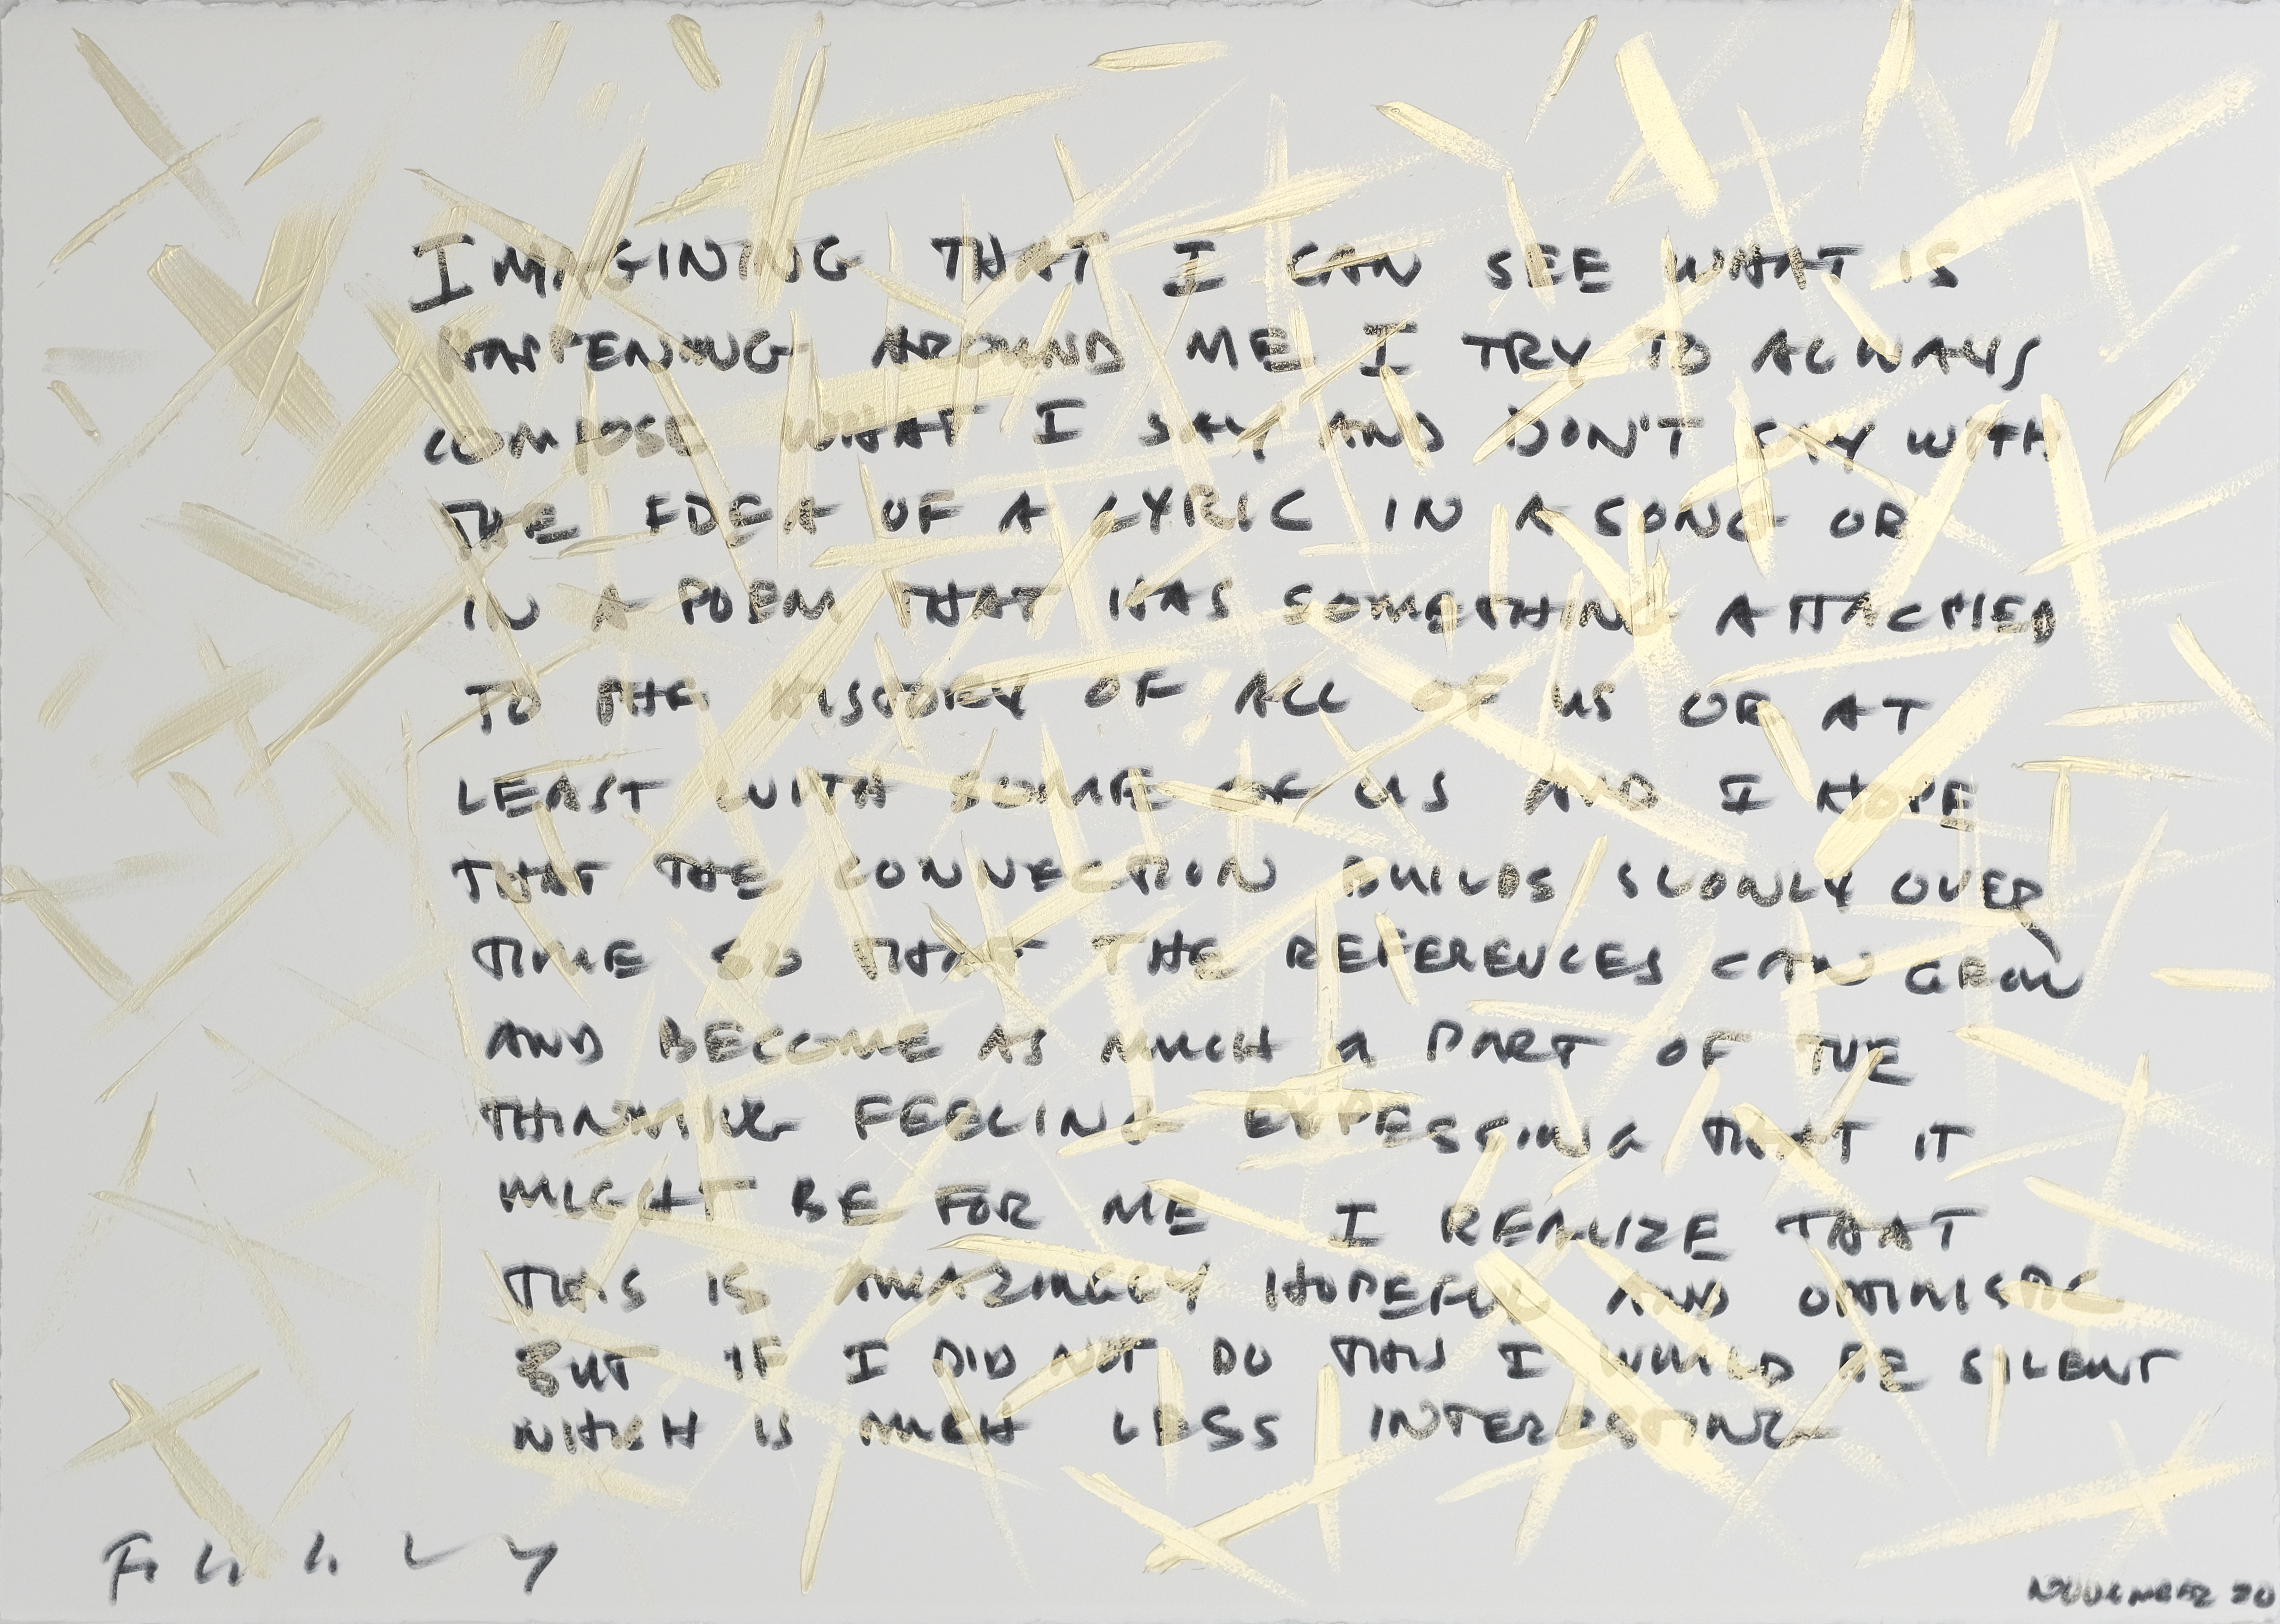 IMAGINING THAT I CAN SEE WHAT IS
HAPPENING AROUND ME I TRY TO ALWAYS
COMPOSE WHAT I SAY AND DON'T SAY WITH
THE IDEA OF A LYRIC IN A SONG OR
IN A POEM THAT HAS SOMETHING ATTACHED
TO THE HISTORY OF ALL OF US OR AT
LEAST WITH SOME OF US AND I HOPE
THAT THE CONNECTION BUILDS SLOWLY OVER
TIME SO THAT THE REFERENCES CAN GROW
AND BECOME AS MUCH A PART OF THE
THINKING FEELING EXPESSING THAT IT
MIGHT BE FOR ME I REALIZE THAT
THIS IS AMAZINGLY HOPEFUL AND OPTIMISTIC
BUT IF I DID NOT DO THIS I WOULD BE SILENT
WHICH IS MUCH LESS INTERESTING
NOVEMBER 20